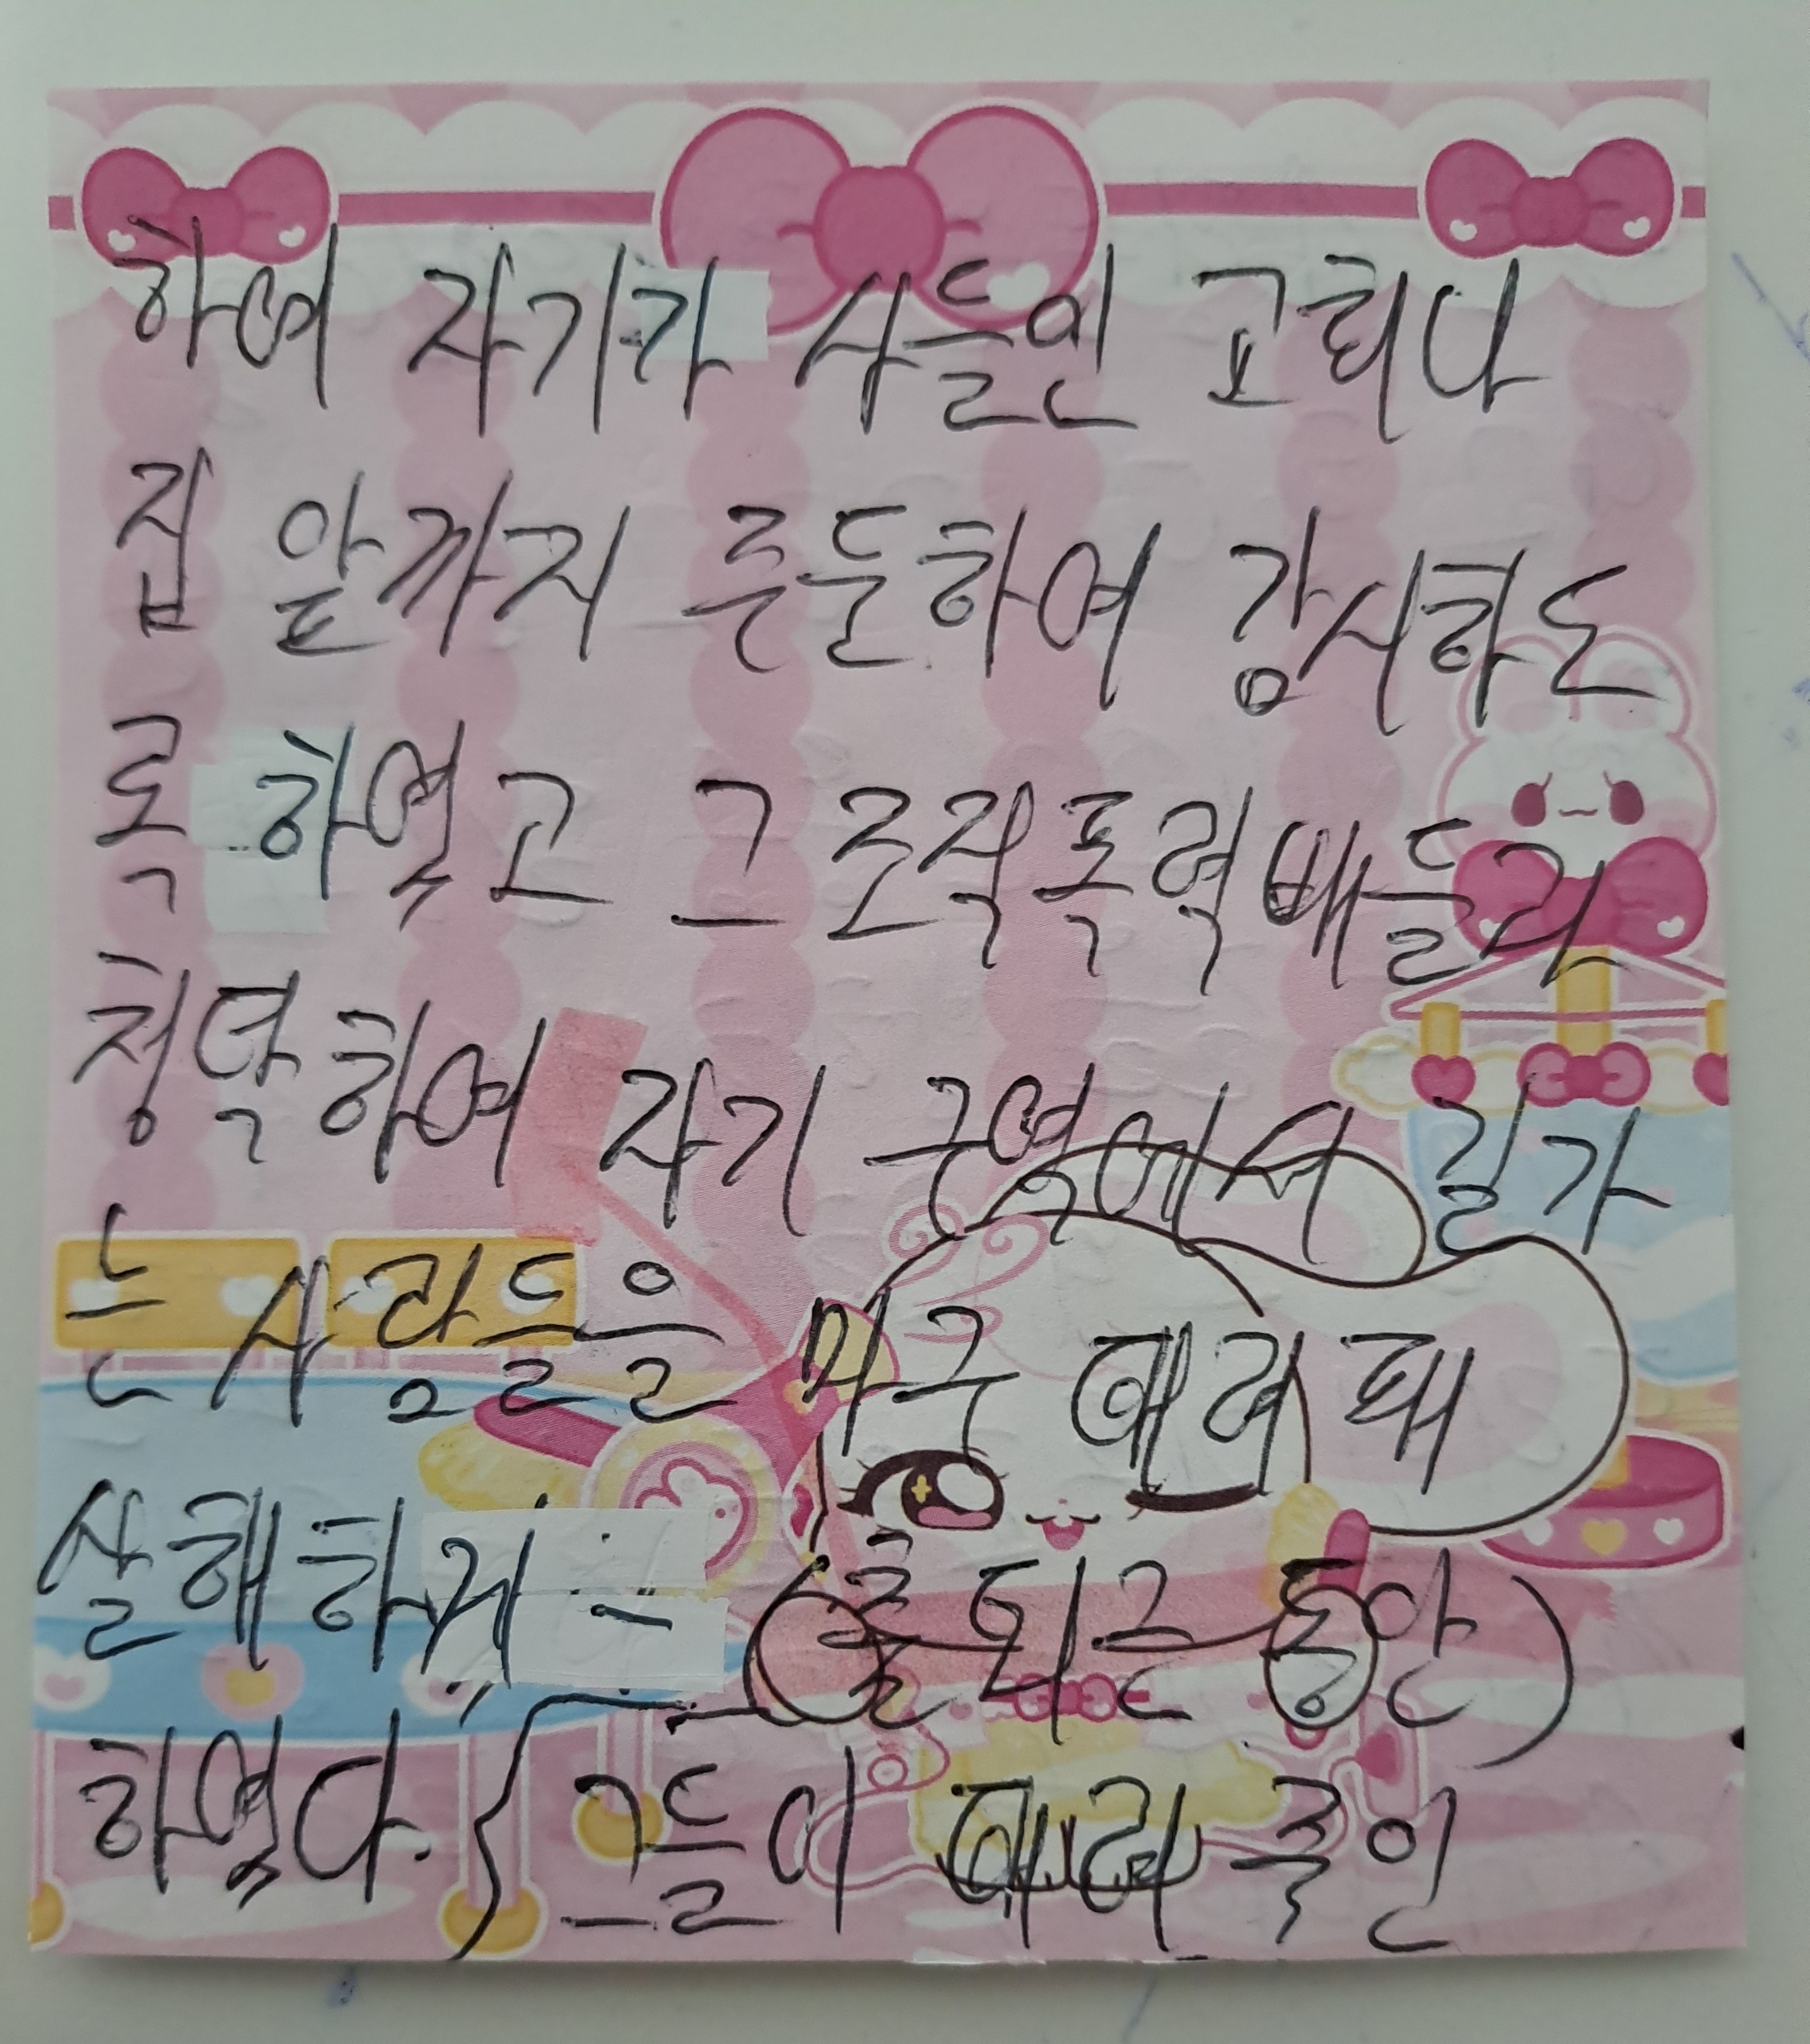 하여 자기가 사들인 교회나
집 앞까지 즌둔하여 감시하도
록 하였고 그 조직폭력배들과
청탁하여 자기 구역에서 길가
는 사람들을 마구 때려 패
살해하게 (출퇴근 동안)
하였다. { 그들이 때려 죽인